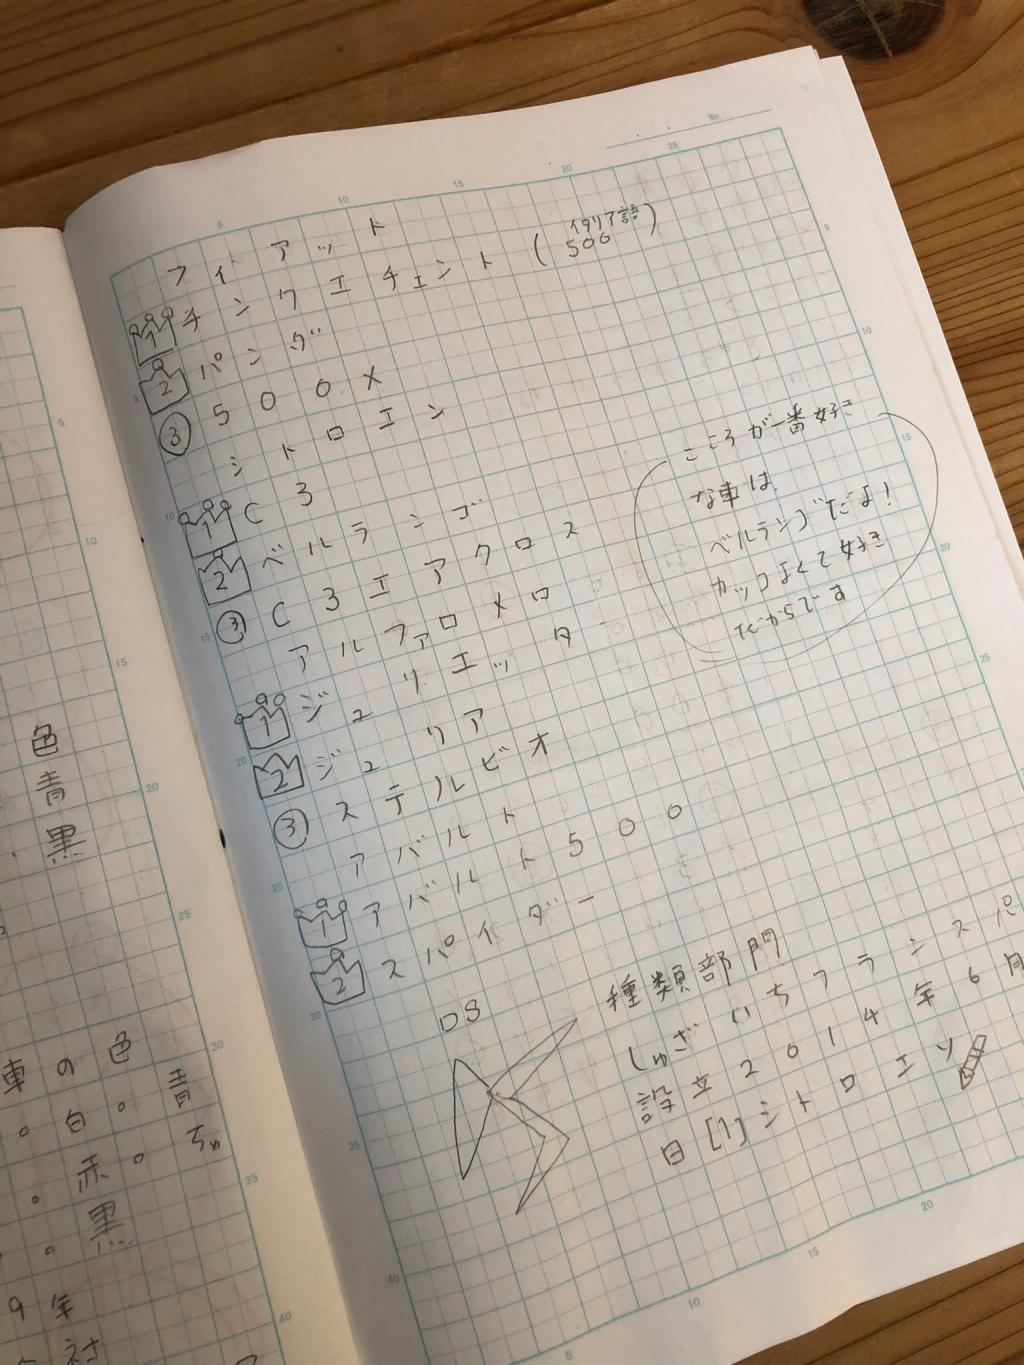 色
青
・黒
車の色
。白。青
。赤。ちゃ
・。黒
9年
社
No.
フィアット
1 チンクエチェント(イタリア語 500)
2 パンダ
③ 500X
シトロエン
1 C3
2 ベルランゴ
③ C3エアクロス
アルファロメロ
1 ジュリエッタ
2 ジュリア
③ ステルビオ
アバルト
1 アバルト500
2 スパイダー
こころが一番好き
な車は、
ベルランゴだよ!
カッコよくて好き
だからです
DS
種類部門
しゅざいちフランスパ
設立2014年6月
日[1]シトロエン